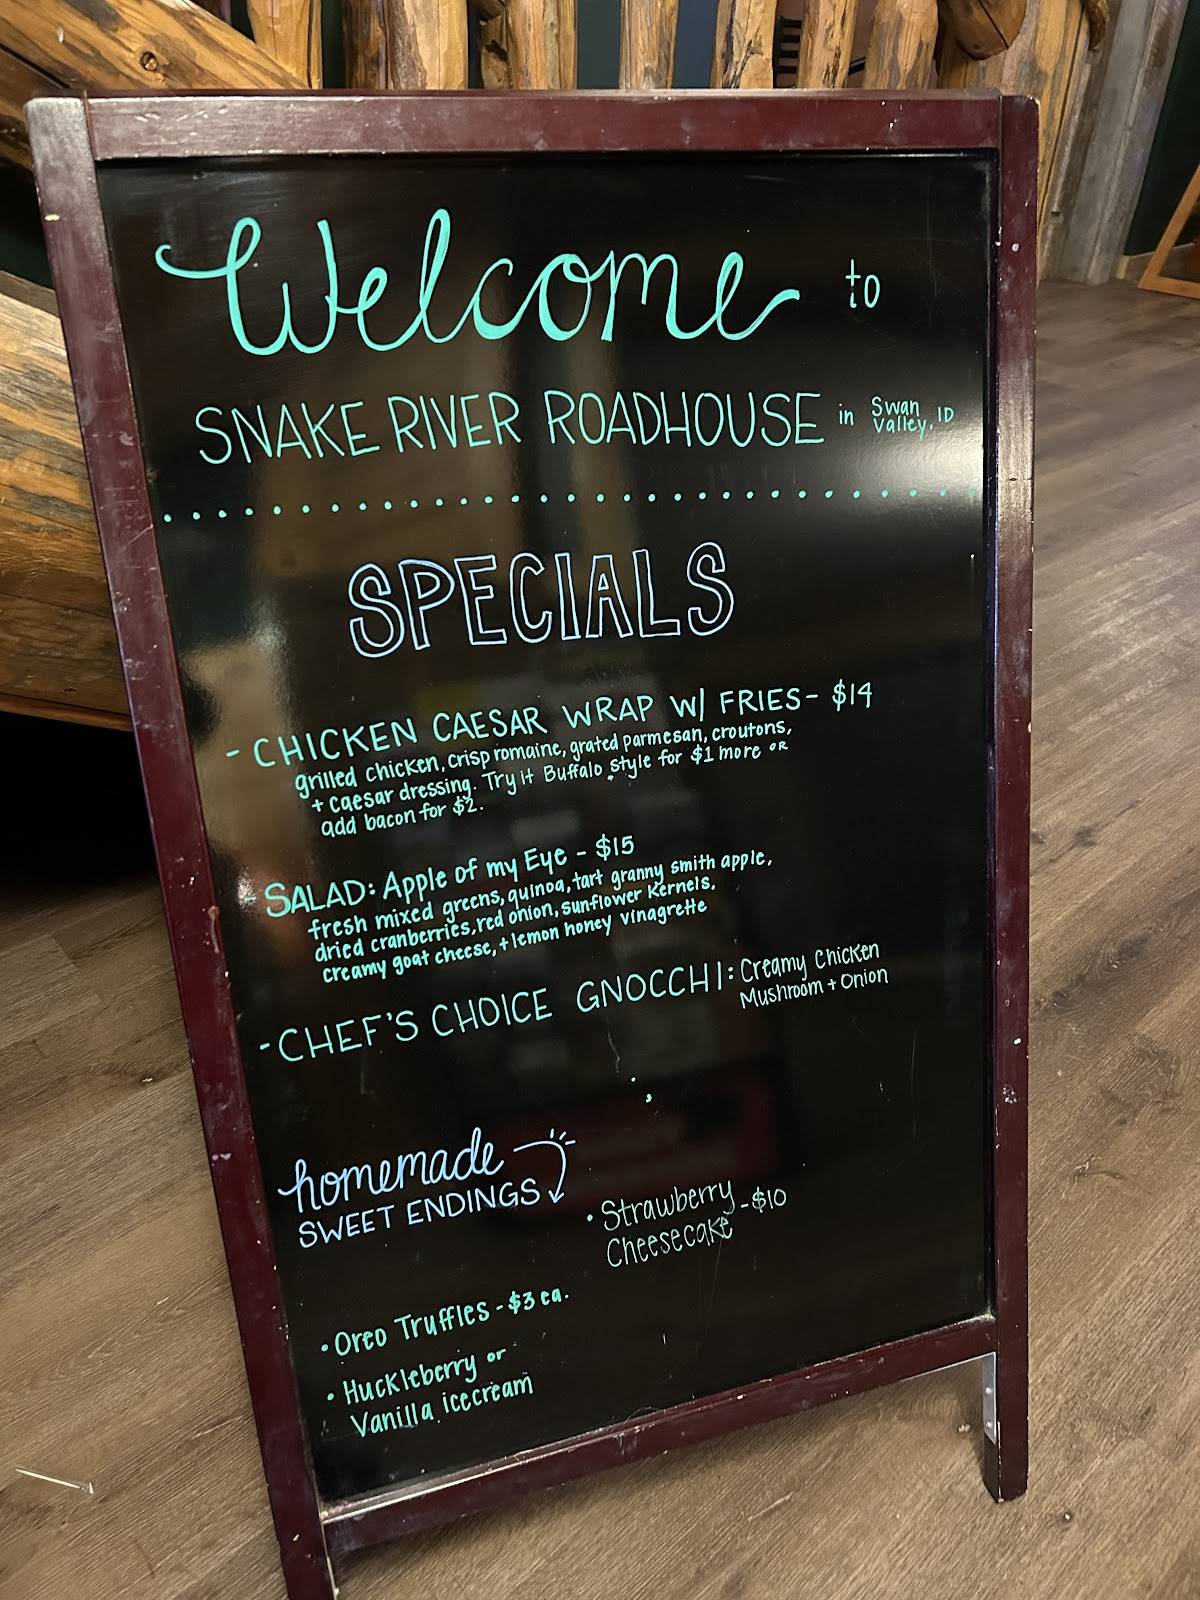 Welcome to
SNAKE RIVER ROADHOUSE in Swan Valley, ID
SPECIALS
- CHICKEN CAESAR WRAP W/ FRIES - $14
grilled chicken, crisp romaine, grated parmesan, croutons,
+ caesar dressing. Try it Buffalo style for $1 more OR
add bacon for $2.
- SALAD: Apple of my Eye - $15
fresh mixed greens, quinoa, tart granny smith apple,
dried cranberries, red onion, sunflower kernels,
creamy goat cheese, + lemon honey vinagrette
- CHEF'S CHOICE GNOCCHI: Creamy Chicken
Mushroom + Onion
homemade
SWEET ENDINGS
• Strawberry
Cheesecake - $10
• Oreo Truffles - $3 ea.
• Huckleberry or
Vanilla icecream